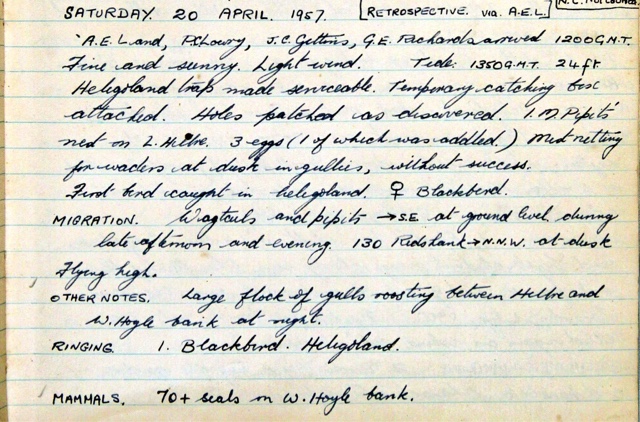 SATURDAY. 20 APRIL. 1957. [RETROSPECTIVE. via. A.E.L.]
'A.E. Land, P.S. Lowry, J.C. Gittins, G.E. Richards arrived 1200 G.M.T.
Fine and sunny. Light wind. Tide: 1350 G.M.T. 24 ft.
Heligoland trap made serviceable. Temporary catching box
attached. Holes patched as discovered. 1. M. Pipits'
nest on L. Hilbre. 3 eggs (1 of which was addled.) Mist netting
for waders at dusk in gullies, without success.
First bird caught in heligoland. ♀ Blackbird.
MIGRATION. Wagtails and pipits → S.E at ground level during
late afternoon and evening. 130 Redshank → N.N.W. at dusk
Flying high.
OTHER NOTES. Large flock of gulls roosting between Hilbre and
W. Hoyle bank at night.
RINGING. 1. Blackbird. Heligoland.
MAMMALS. 70+ seals on W. Hoyle bank.